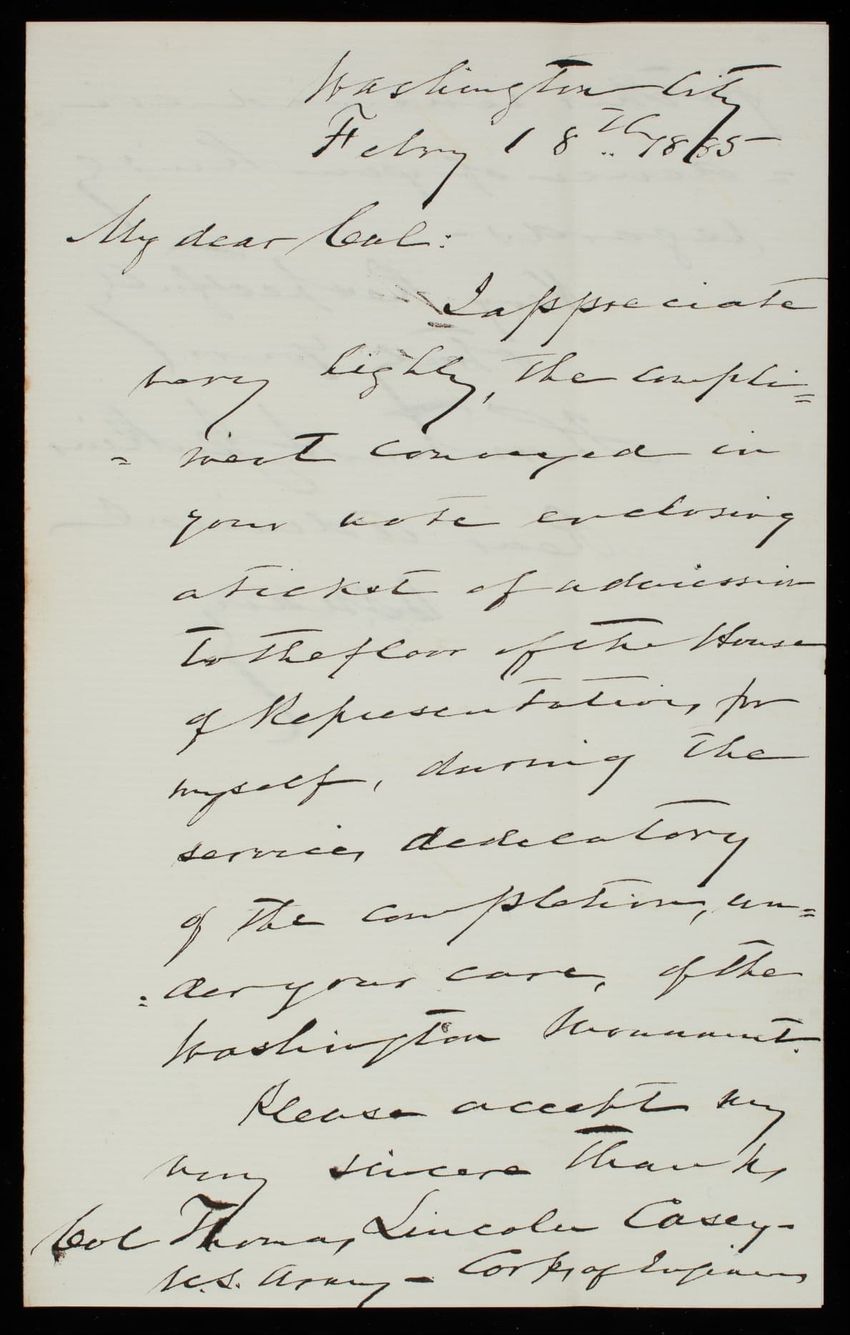 Washington City
Febry 18th 1885
My dear Col:
I appreciate
very highly, the compli=
=ment conveyed in
your note enclosing
a ticket of admission
to the floor of the House
of Representatives, for
myself, during the
services dedicatory
of the completion, un=
=der your care, of the
Washington Monument.
Please accept my
very sincere thanks
Col Thomas Lincoln Casey-
U.S. Army - Corps of Engineers